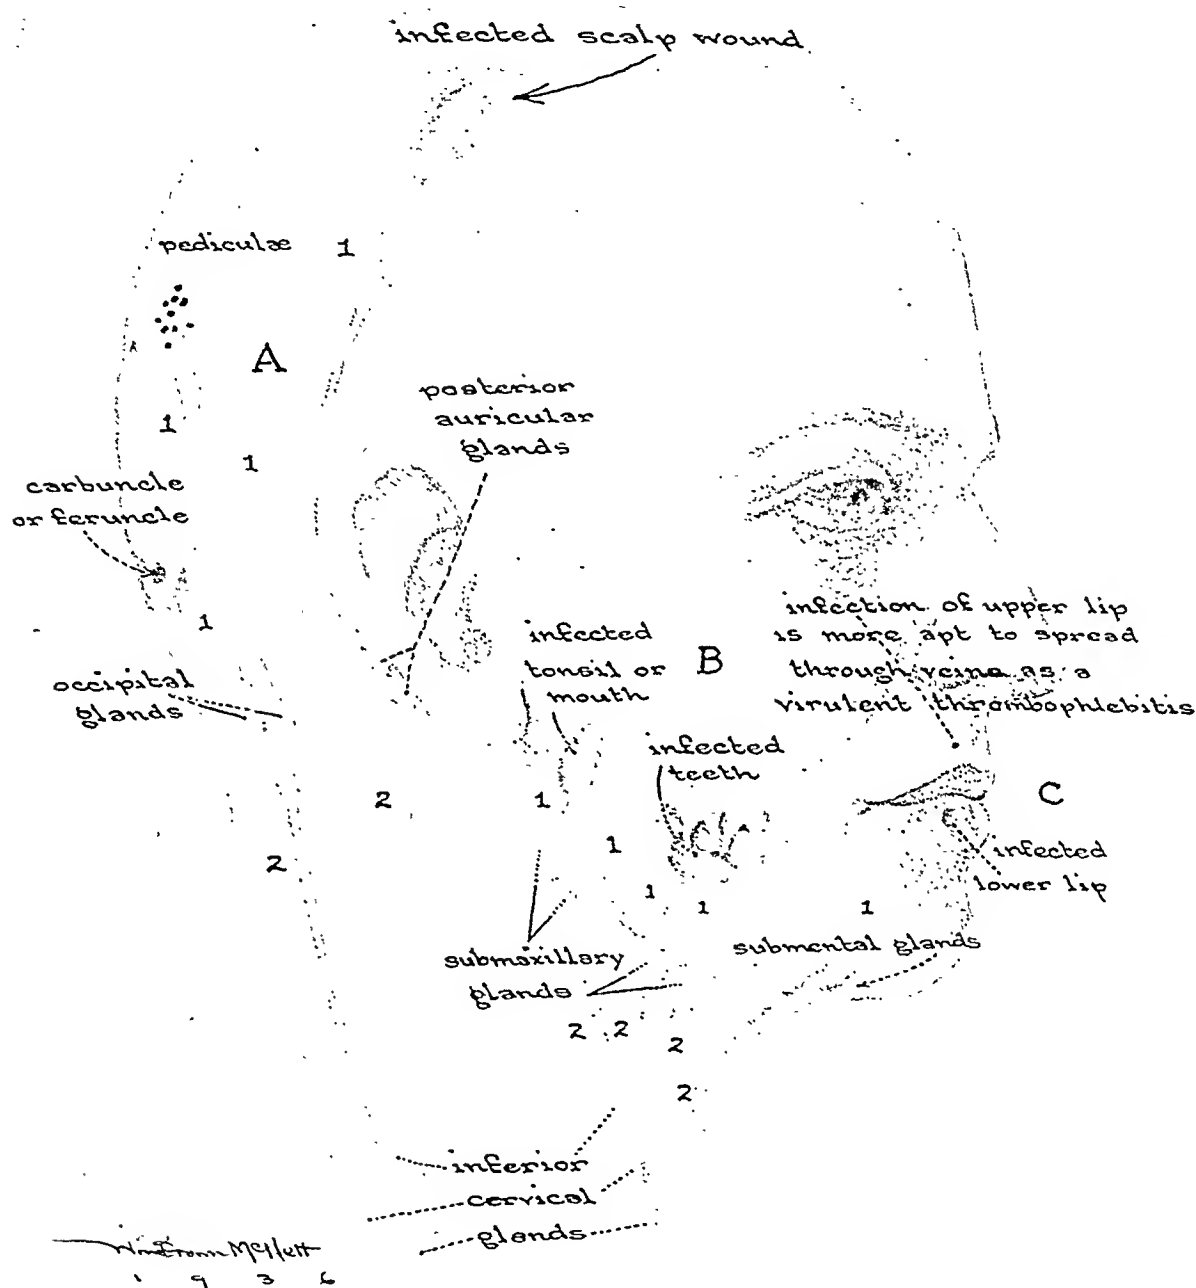 infected scalp wound
pediculæ 1
A
posterior
auricular
glands
1
1
carbuncle
or feruncle
1
occipital
glands
infected
tonsil or
mouth
B
infection of upper lip
is more apt to spread
through veins as a
virulent thrombophlebitis
infected
teeth
C
2
1
1
2
infected
lower lip
1
1
1
submental glands
submaxillary
glands
2 2
2
2
inferior
cervical
glands
1 9 3 6